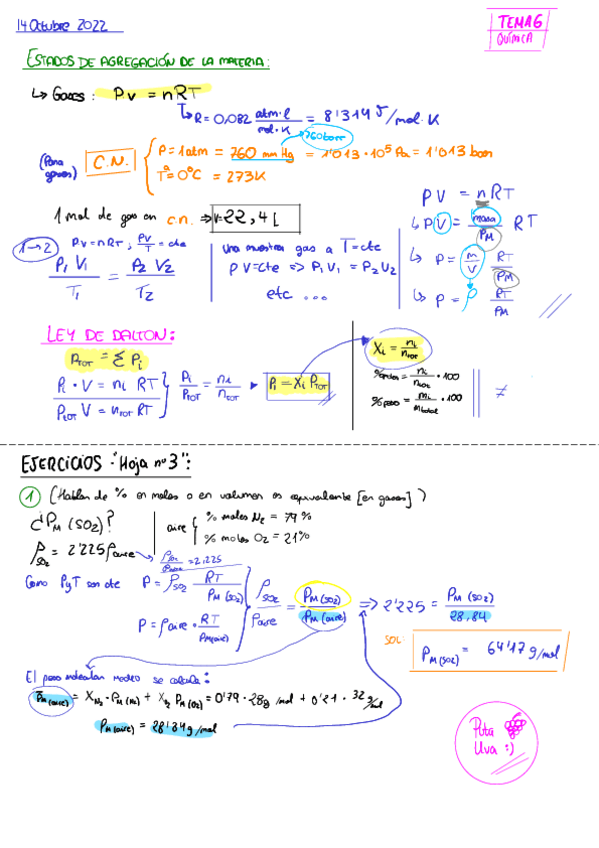 14 Octubre 2022
TEMA 6
QUÍMICA
ESTADOS DE AGREGACIÓN DE LA MATERIA:
↳ Gases: P V = n R T
↳ R = 0,082 atm·l / mol·K = 8'314 J/mol·K
(Para gases) C.N. { P = 1 atm = 760 mm Hg = 1'013·10⁵ Pa = 1'013 bar
760 torr
Tª = 0ºC = 273 K
1 mol de gas en c.n. ⇒ V = 22,4 L
1→2 PV = nRT; PV/T = cte
P₁ V₁ / T₁ = P₂ V₂ / T₂
Una muestra gas a T = cte
PV = cte ⇒ P₁ V₁ = P₂ V₂
etc ...
PV = nRT
↳ PV = masa / PM RT
↳ P = m/V RT/PM
↳ P = ρ RT/PM
LEY DE DALTON:
PTOT = Σ Pi
Pi · V = ni RT
PTOT V = nTOT RT
Pi / PTOT = ni / nTOT ▸ Pi = Xi PTOT
Xi = ni / nTOT
% molar = ni / nTOT · 100
% peso = mi / mtotal · 100
≠
EJERCICIOS "Hoja nº 3":
1 (Hablan de % en moles o en volumen es equivalente [en gases])
¿PM (SO2)?
aire { % moles N2 = 79 %
% moles O2 = 21%
ρSO2 = 2'225 ρaire
ρSO2 / ρaire = 2,225
Como P y T son cte
P = ρSO2 RT / PM (SO2)
P = ρaire · RT / PM(aire)
ρSO2 / ρaire = PM (SO2) / PM (aire) ⇒ 2'225 = PM (SO2) / 28,84
SOL:
PM (SO2) = 64'17 g/mol
El peso molecular medio se calcula:
PM (aire) = XN2 · PM (N2) + XO2 PM (O2) = 0'79 · 28 g/mol + 0'21 · 32 g/mol
PM (aire) = 28'84 g/mol
Puta
Uva :)